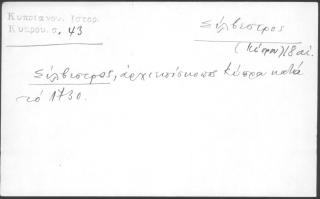 Κυπριανου. Ιστορ.
Κυπρου.σ. 43
Σίλβεστρος
(Κύπρου) 18 αἰ.
Σίλβεστρος, ἀρχιεπίσκοπος Κύπρου κατά
τό 1730.